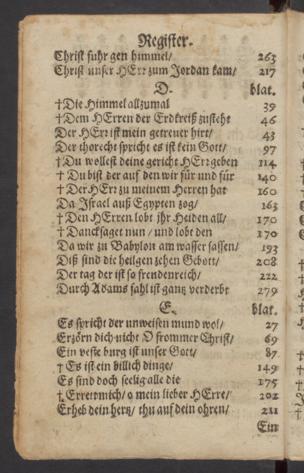 Register.
Christ fuhr gen himmel/ 263
Christ unser HErr zum Jordan kam/ 217
D. blat.
†Die Himmel allzumal 39
†Dem HErren der Erdkreiß zusteht 46
Der HErr ist mein getreuer hirt/ 43
Der thorecht spricht es ist kein Gott/ 97
†Du wollest deine gericht HErr geben 114
† Du bist der auf den wir für und für 140
†Der HErr zu meinem Herren hat 160
Da Israel auß Egypten zog/ 163
†Den HErren lobt ihr Heiden all/ 170
†Dancksaget nun/ und lobt den 170
Da wir zu Babylon am wasser sassen/ 193
Diß sind die heilgen zehen Gebott/ 208
Der tag der ist so freudenreich/ 222
Durch Adams fahl ist gantz verderbt 279
E. blat.
Es spricht der unweisen mund wol/ 27
Erzörn dich nicht O frommer Christ/ 69
Ein veste burg ist unser Gott/ 87
† Es ist ein billich dinge/ 149
Es sind doch seelig alle die 175
† Errett mich/ o mein lieber HErre/ 202
Erheb dein hertz/ thu auf dein ohren/ 211
Ein